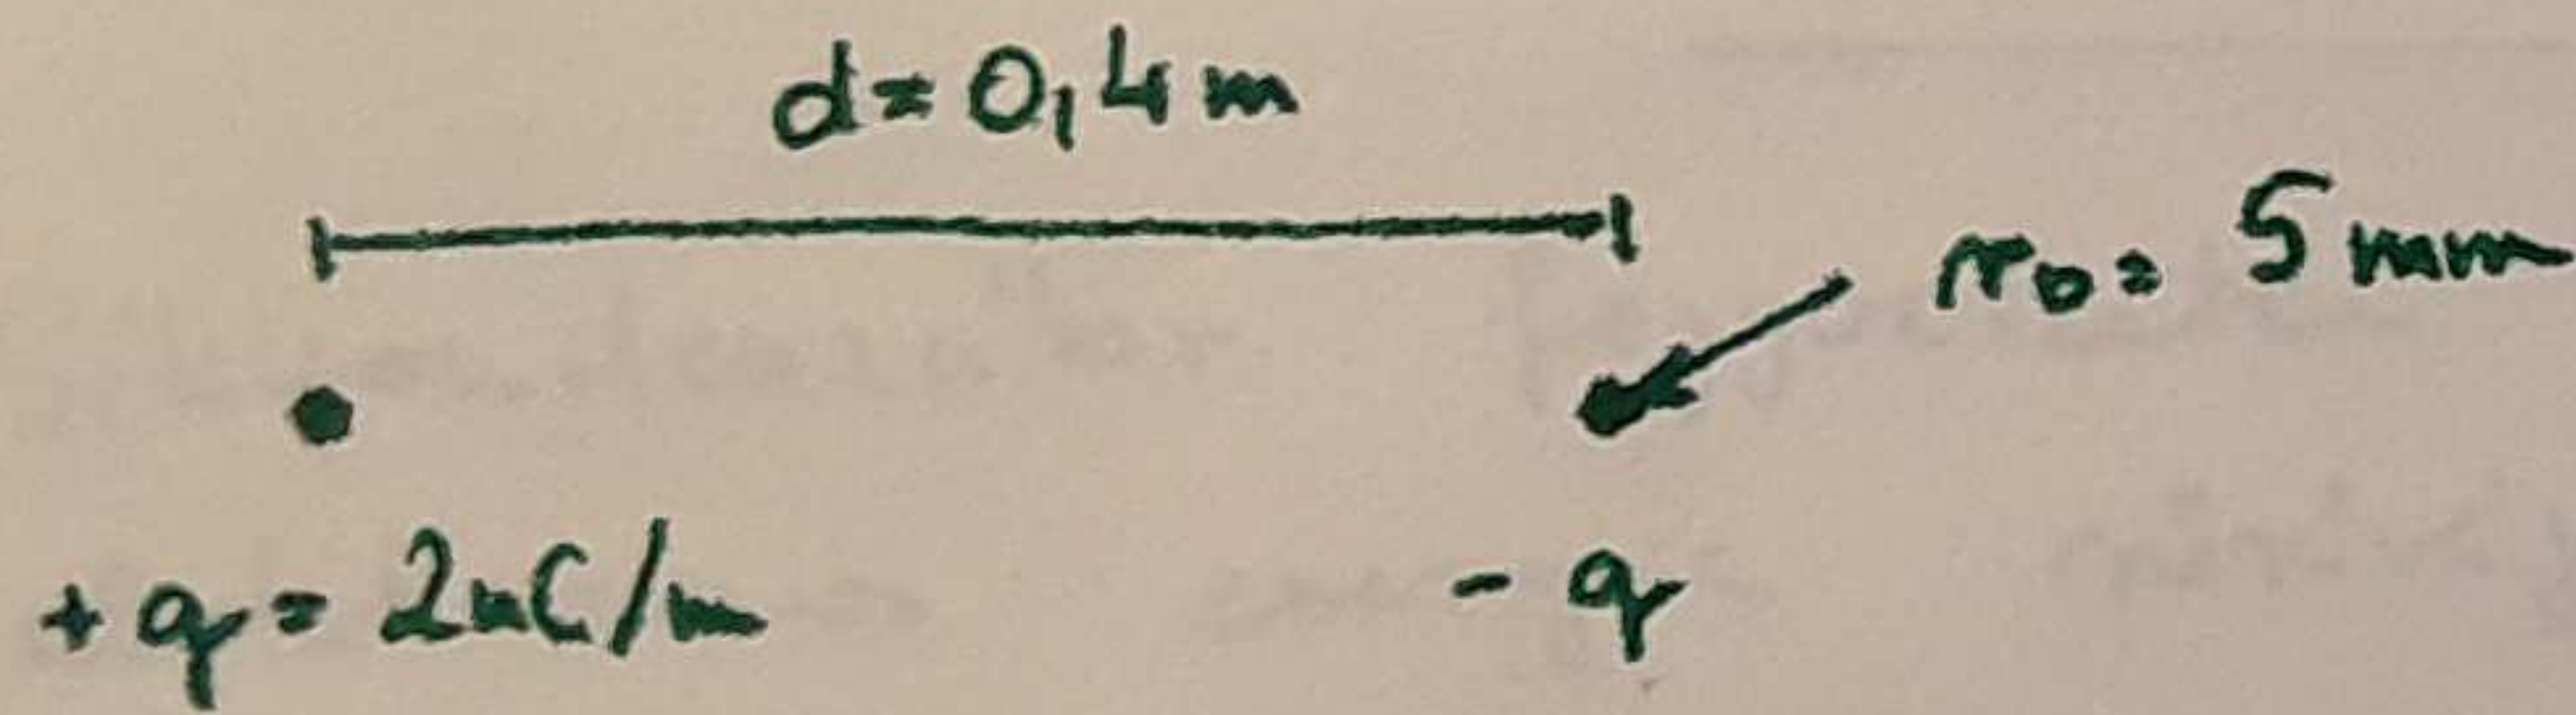 d = 0,4 m
r₀ = 5 mm
+ q = 2nC/m
- q